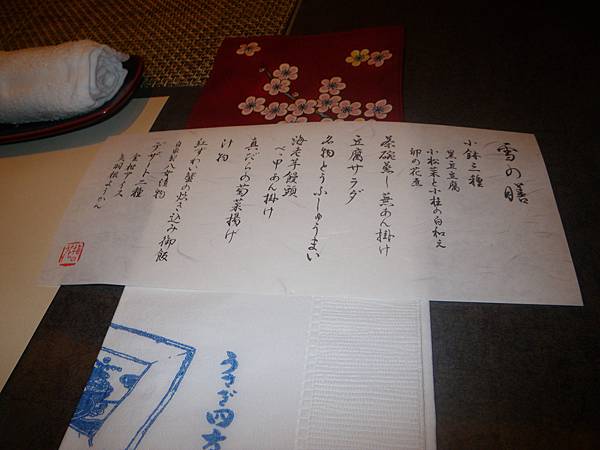 雪の膳
小鉢三種
黒豆豆腐
小松菜と小柱の白和え
卯の花煮
茶碗蒸し蕪あん掛け
豆腐サラダ
名物とうふしゅうまい
海老芋饅頭
べっ甲あん掛け
真だらの菊菜揚げ
汁物
紅ずわい蟹の炊き込み御飯
自家製香の物
デザート二種
うさぎ四